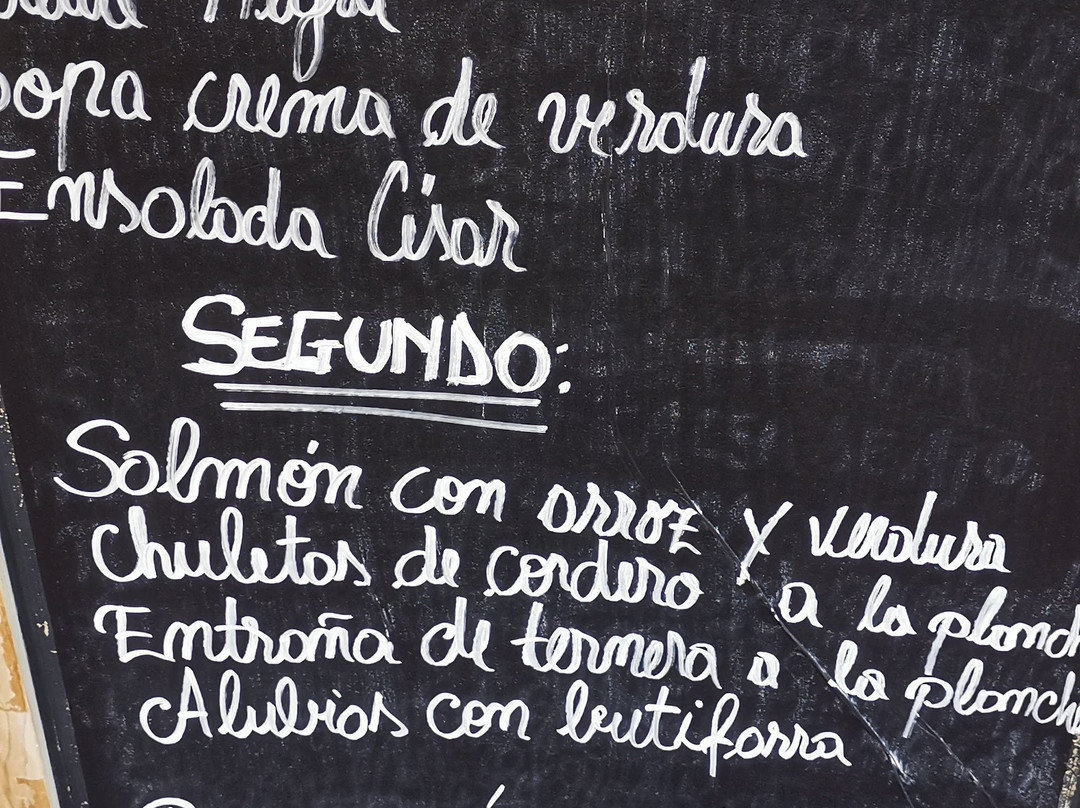 sopa crema de verdura
Ensalada César
SEGUNDO:
Salmón con arroz y verdura
Chuletas de cordero a la planch
Entraña de ternera a la planch
Alubias con butifarra